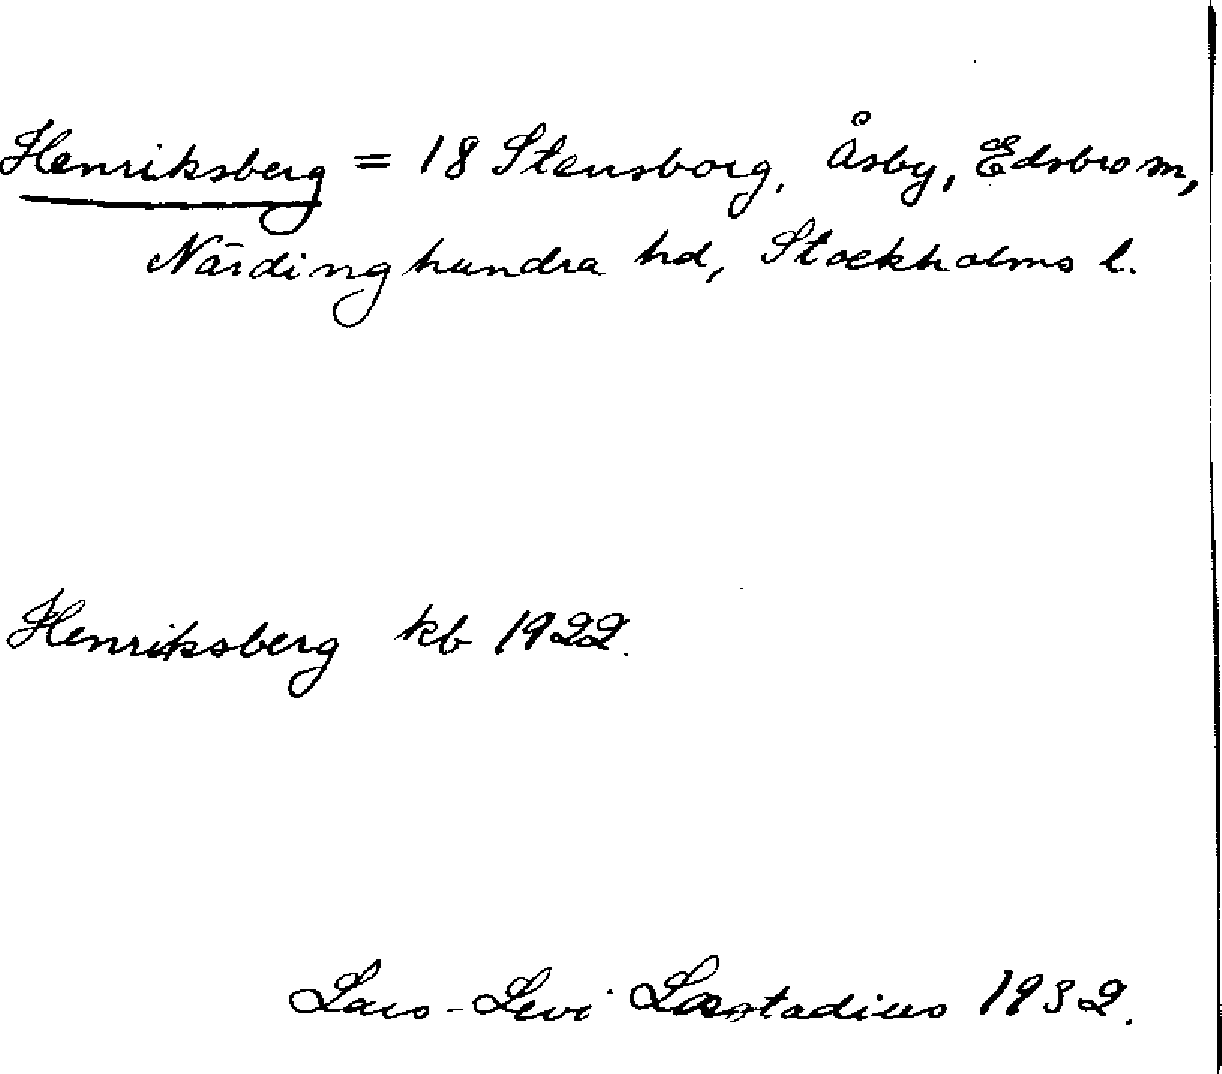 Henriksberg = 18 Stensborg, Åsby, Edsbro sn,
Närdinghundra hd, Stockholms l.
Henriksberg kb 1922.
Lars-Levi Læstadius 1932.